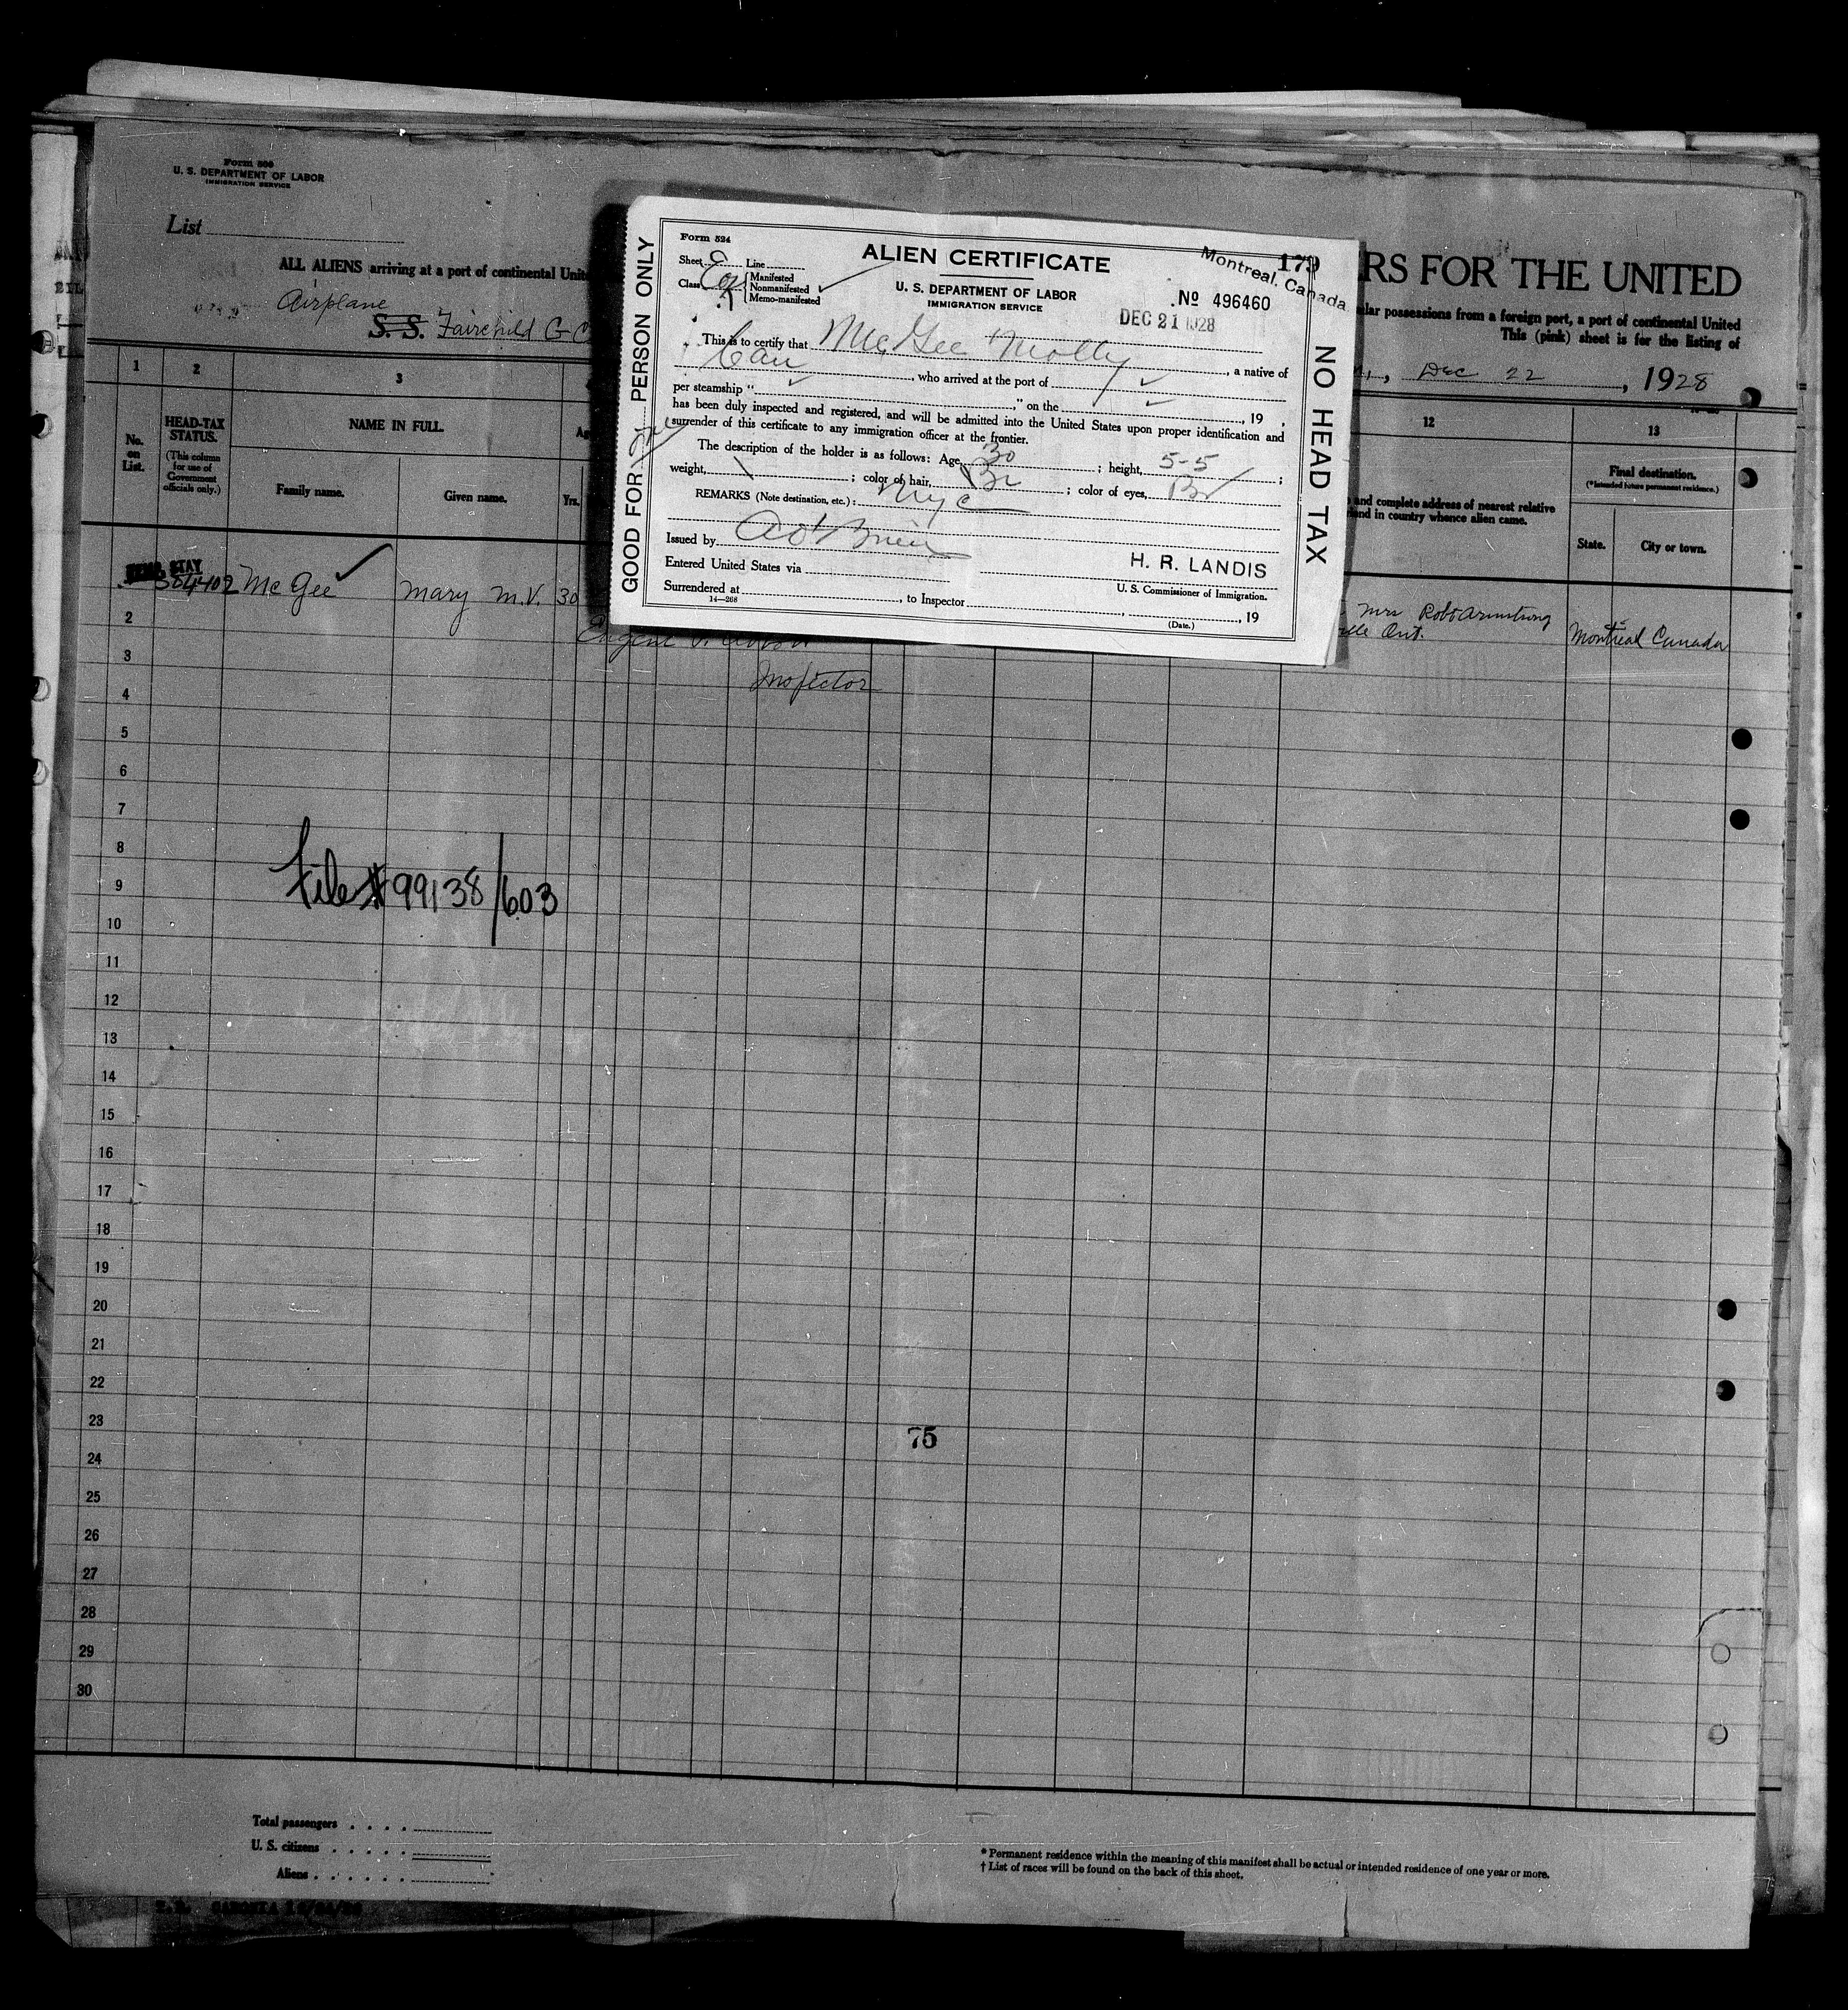 Form 500
U. S. DEPARTMENT OF LABOR
IMMIGRATION SERVICE
List
RS FOR THE UNITED
ALL ALIENS arriving at a port of continental Unite
lar possessions from a foreign port, a port of continental United
This (pink) sheet is for the listing of
Airplane
S. S. Fairchild G-C
Dec 22, 1928
GOOD FOR One PERSON ONLY
Form 524
Sheet C Line
Class
Manifested
Nonmanifested
Memo-manifested
ALIEN CERTIFICATE
U. S. DEPARTMENT OF LABOR
IMMIGRATION SERVICE
179
Montreal, Canada
No 496460
DEC 21 1928
This is to certify that McGee Molly, a native of
Can, who arrived at the port of
per steamship " ," on the , 19 ,
has been duly inspected and registered, and will be admitted into the United States upon proper identification and
surrender of this certificate to any immigration officer at the frontier.
The description of the holder is as follows: Age, 30; height, 5-5;
weight, ; color of hair, Br; color of eyes, Br
REMARKS (Note destination, etc.): NYC
Issued by A O'Brien
H. R. LANDIS
Entered United States via
U. S. Commissioner of Immigration.
Surrendered at , to Inspector , , 19
14—268
(Date.)
NO HEAD TAX
1 2 3 12 13
No. on List.
HEAD-TAX STATUS.
(This column for use of Government officials only.)
NAME IN FULL.
Family name.
Given name.
Yrs.
and complete address of nearest relative
in country whence alien came.
Final destination.
(*Intended future permanent residence.)
State.
City or town.
STAY
304402 McGee Mary M.V. 30
Mrs Robt Armstrong
Ont.
Montreal Canada
Eugene
Inspector
2
3
4
5
6
7
8
File #99138/603
9
10
11
12
13
14
15
16
17
18
19
20
21
22
23
75
24
25
26
27
28
29
30
Total passengers
U. S. citizens
Aliens
* Permanent residence within the meaning of this manifest shall be actual or intended residence of one year or more.
† List of races will be found on the back of this sheet.